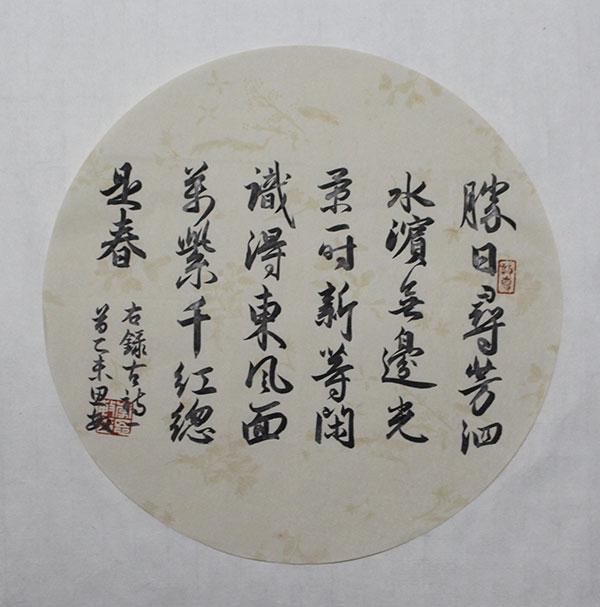 勝日尋芳泗
水濱無邊光
景一时新等閑
識得東风面
萬紫千红總
是春
右録古詩一
首乙未